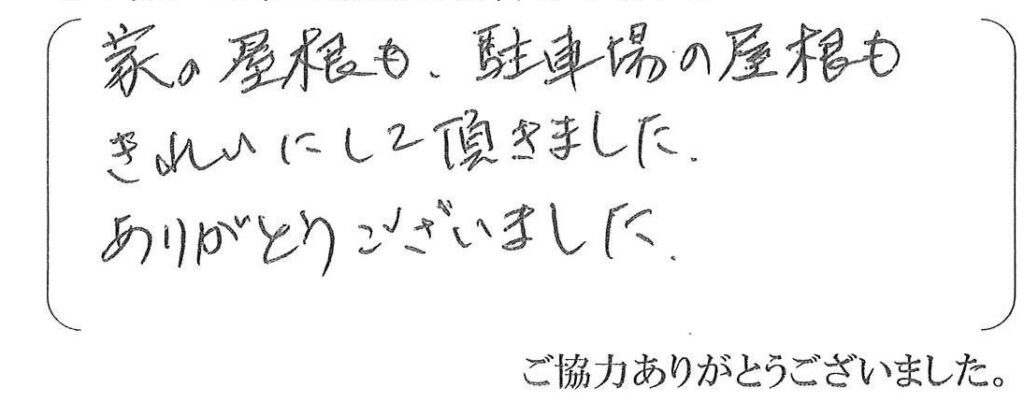 家の屋根も、駐車場の屋根も
きれいにして頂きました.
ありがとうございました.
ご協力ありがとうございました。